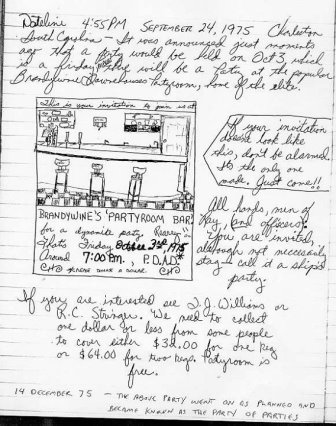 Dateline 4:55PM SEPTEMBER 24, 1975 Charleston
South Carolina - It was announced just moments
ago that a party would be held on Oct 3, which
is a friday. There will be a party at the popular
Brandywine Townehouses Partyroom, home of the elite.
This is your invitation to join us at
BRANDYWINE'S PARTYROOM BAR
for a dynamite party.
Thats Friday October 3rd 1975
Around 7:00 PM, P.D.A.D.
If your invitation
doesnt look like
this, don't be alarmed
Its the only one
made. Just come!!
All hands, men of
Key, (and officers)
you are invited,
although not necessarily
stag - call it a ship's
party.
If you are interested see T.J. Williams or
R.C. Stringer. We need to collect
one dollar or less from some people
to cover either $32.00 for one keg
or $64.00 for two kegs. Partyroom is
free.
14 DECEMBER 75 - THE ABOVE PARTY WENT ON AS PLANNED AND
BECAME KNOWN AS THE PARTY OF PARTIES